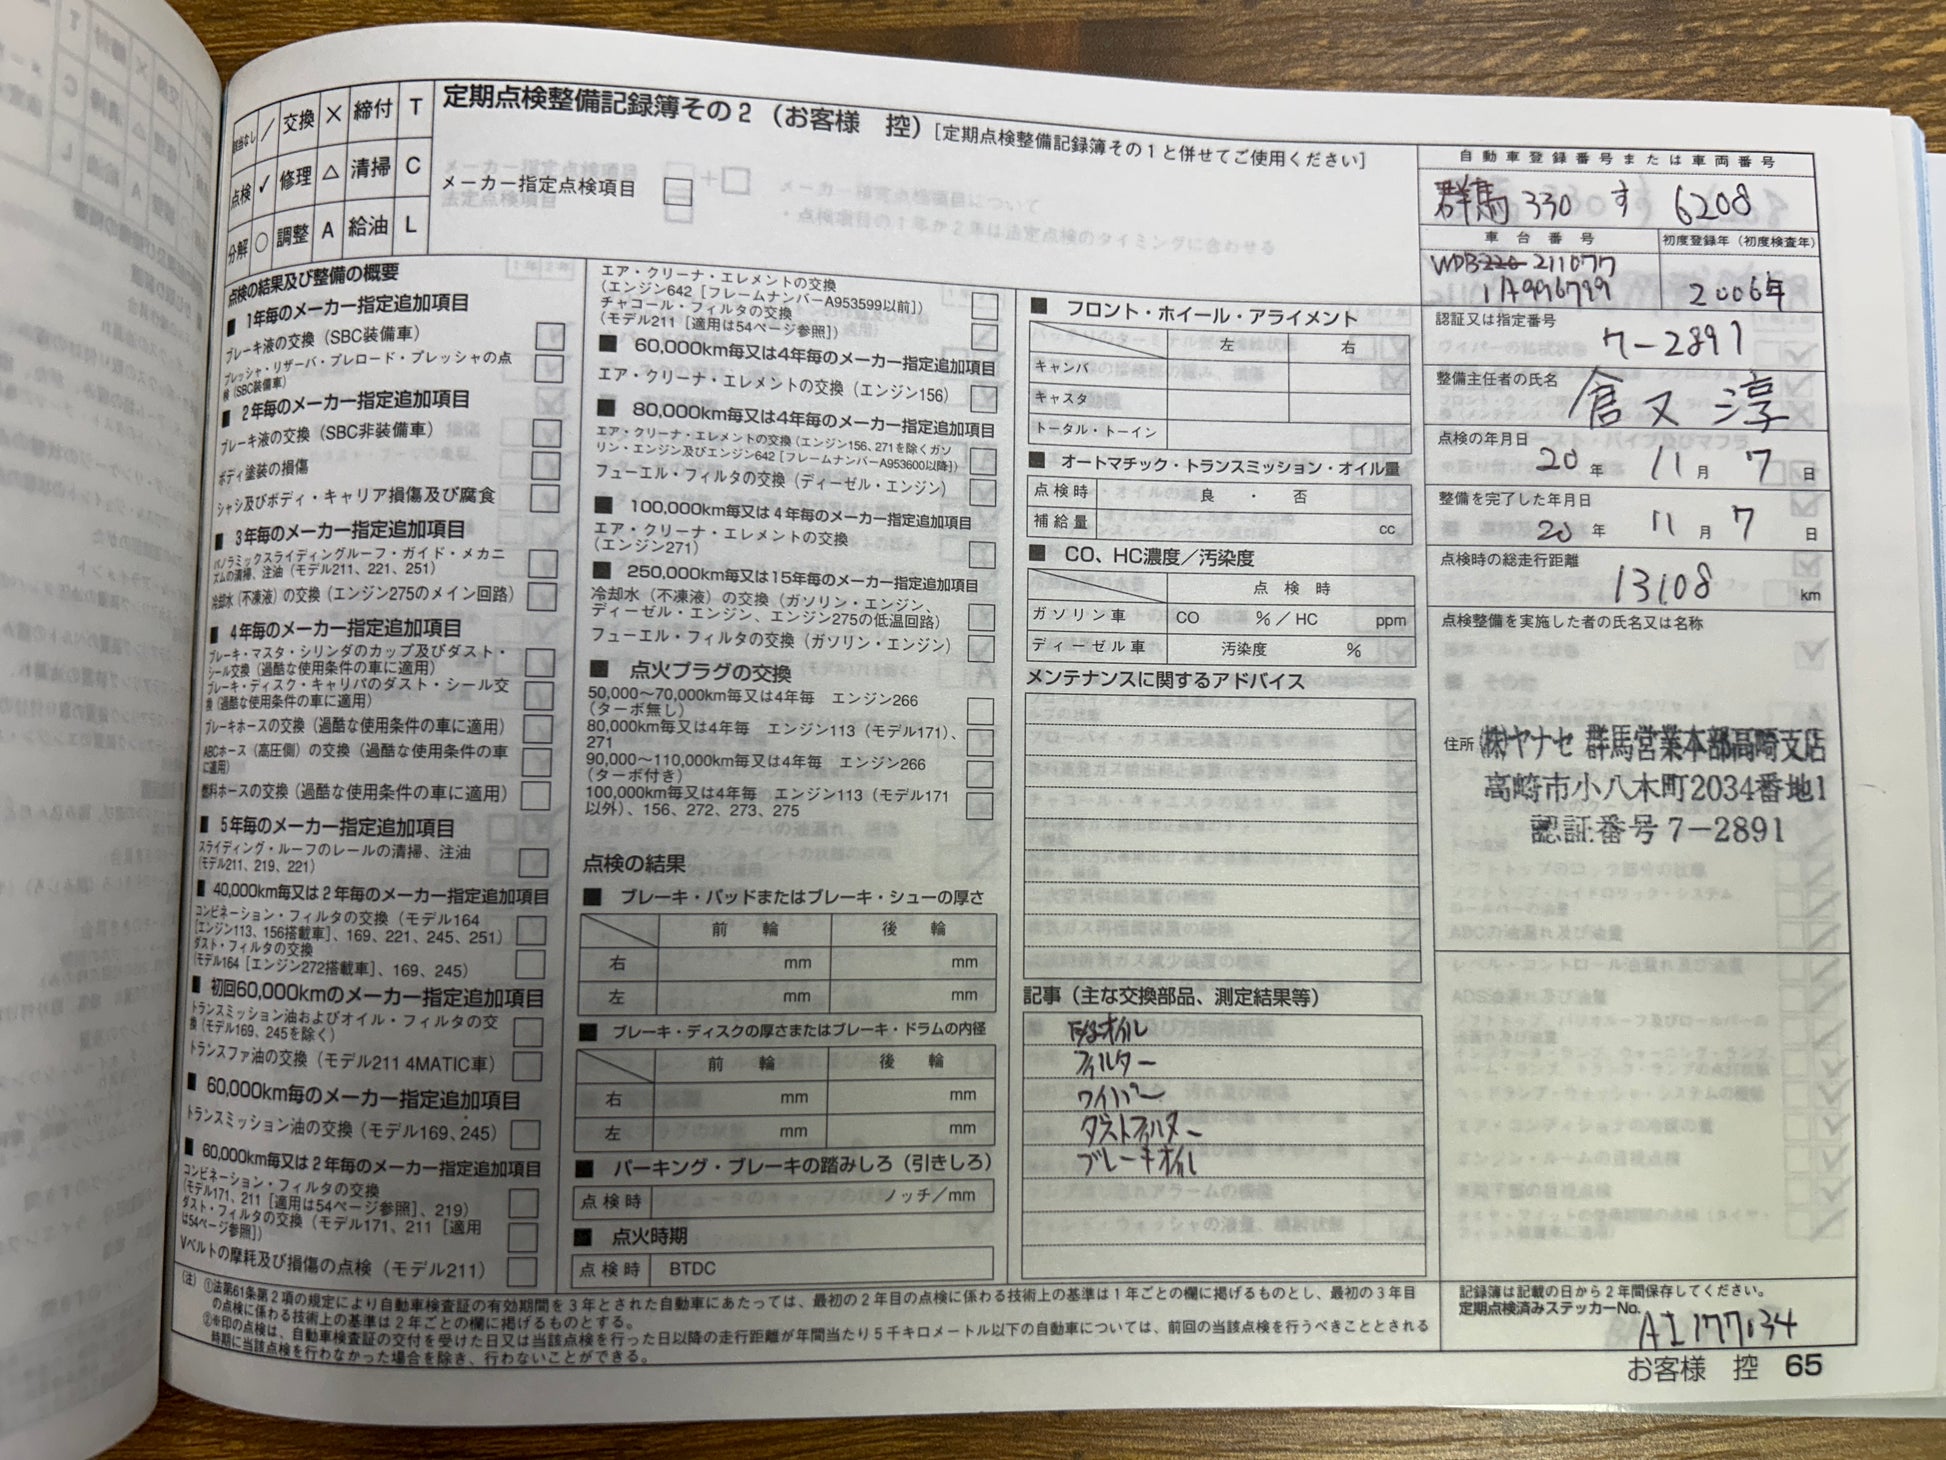 該当なし / 交換 × 締付 T
点検 ✓ 修理 △ 清掃 C
分解 ○ 調整 A 給油 L
定期点検整備記録簿その2（お客様 控）［定期点検整備記録簿その1と併せてご使用ください］
メーカー指定点検項目
点検の結果及び整備の概要
■ 1年毎のメーカー指定追加項目
ブレーキ液の交換（SBC装備車）
プレッシャ・リザーバ・プレロード・プレッシャの点
検（SBC装備車）
■ 2年毎のメーカー指定追加項目
ブレーキ液の交換（SBC非装備車）
ボディ塗装の損傷
シャシ及びボディ・キャリア損傷及び腐食
■ 3年毎のメーカー指定追加項目
パノラミックスライディングルーフ・ガイド・メカニ
ズムの清掃、注油（モデル211、221、251）
冷却水（不凍液）の交換（エンジン275のメイン回路）
■ 4年毎のメーカー指定追加項目
ブレーキ・マスタ・シリンダのカップ及びダスト・
シール交換（過酷な使用条件の車に適用）
ブレーキ・ディスク・キャリパのダスト・シール交
換（過酷な使用条件の車に適用）
ブレーキホースの交換（過酷な使用条件の車に適用）
ABCホース（高圧側）の交換（過酷な使用条件の車
に適用）
燃料ホースの交換（過酷な使用条件の車に適用）
■ 5年毎のメーカー指定追加項目
スライディング・ルーフのレールの清掃、注油
（モデル211、219、221）
■ 40,000km毎又は2年毎のメーカー指定追加項目
コンビネーション・フィルタの交換（モデル164
［エンジン113、156搭載車］、169、221、245、251）
ダスト・フィルタの交換
（モデル164［エンジン272搭載車］、169、245）
■ 初回60,000kmのメーカー指定追加項目
トランスミッション油およびオイル・フィルタの交
換（モデル169、245を除く）
トランスファ油の交換（モデル211 4MATIC車）
■ 60,000km毎のメーカー指定追加項目
トランスミッション油の交換（モデル169、245）
■ 60,000km毎又は2年毎のメーカー指定追加項目
コンビネーション・フィルタの交換
（モデル171、211［適用は54ページ参照］、219）
ダスト・フィルタの交換（モデル171、211［適用
は54ページ参照］）
Vベルトの摩耗及び損傷の点検（モデル211）
エア・クリーナ・エレメントの交換
（エンジン642［フレームナンバーA953599以前］）
チャコール・フィルタの交換
（モデル211［適用は54ページ参照］）
■ 60,000km毎又は4年毎のメーカー指定追加項目
エア・クリーナ・エレメントの交換（エンジン156）
■ 80,000km毎又は4年毎のメーカー指定追加項目
エア・クリーナ・エレメントの交換（エンジン156、271を除くガソ
リン・エンジン及びエンジン642［フレームナンバーA953600以降］）
フューエル・フィルタの交換（ディーゼル・エンジン）
■ 100,000km毎又は4年毎のメーカー指定追加項目
エア・クリーナ・エレメントの交換
（エンジン271）
■ 250,000km毎又は15年毎のメーカー指定追加項目
冷却水（不凍液）の交換（ガソリン・エンジン、
ディーゼル・エンジン、エンジン275の低温回路）
フューエル・フィルタの交換（ガソリン・エンジン）
■ 点火プラグの交換
50,000～70,000km毎又は4年毎 エンジン266
（ターボ無し）
80,000km毎又は4年毎 エンジン113（モデル171）、
271
90,000～110,000km毎又は4年毎 エンジン266
（ターボ付き）
100,000km毎又は4年毎 エンジン113（モデル171
以外）、156、272、273、275
点検の結果
■ ブレーキ・パッドまたはブレーキ・シューの厚さ
前 輪 後 輪
右 mm mm
左 mm mm
■ ブレーキ・ディスクの厚さまたはブレーキ・ドラムの内径
前 輪 後 輪
右 mm mm
左 mm mm
■ パーキング・ブレーキの踏みしろ（引きしろ）
点検時 ノッチ／mm
■ 点火時期
点検時 BTDC
■ フロント・ホイール・アライメント
左 右
キャンバ
キャスタ
トータル・トーイン
■ オートマチック・トランスミッション・オイル量
点検時 良 ・ 否
補給量 cc
■ CO、HC濃度／汚染度
点 検 時
ガソリン車 CO %／HC ppm
ディーゼル車 汚染度 %
メンテナンスに関するアドバイス
記事（主な交換部品、測定結果等）
オイル
フィルター
ワイパー
ダストフィルター
ブレーキオイル
自動車登録番号または車両番号
群馬 330 す 6208
車台番号 初度登録年（初度検査年）
WDB 211077
1A996799 2006年
認証又は指定番号
7-2891
整備主任者の氏名
倉又 淳
点検の年月日
20年 11月 7日
整備を完了した年月日
20年 11月 7日
点検時の総走行距離
13108 km
点検整備を実施した者の氏名又は名称
住所 ㈱ヤナセ 群馬営業本部高崎支店
高崎市小八木町2034番地1
認証番号7-2891
記録簿は記載の日から2年間保存してください。
定期点検済みステッカーNo.
AI177034
（注）①法第61条第2項の規定により自動車検査証の有効期間を3年とされた自動車にあたっては、最初の2年目の点検に係わる技術上の基準は1年ごとの欄に掲げるものとし、最初の3年目
の点検に係わる技術上の基準は2年ごとの欄に掲げるものとする。
②※印の点検は、自動車検査証の交付を受けた日又は当該点検を行った日以降の走行距離が年間当たり5千キロメートル以下の自動車については、前回の当該点検を行うべきこととされる
時期に当該点検を行わなかった場合を除き、行わないことができる。
お客様 控 65